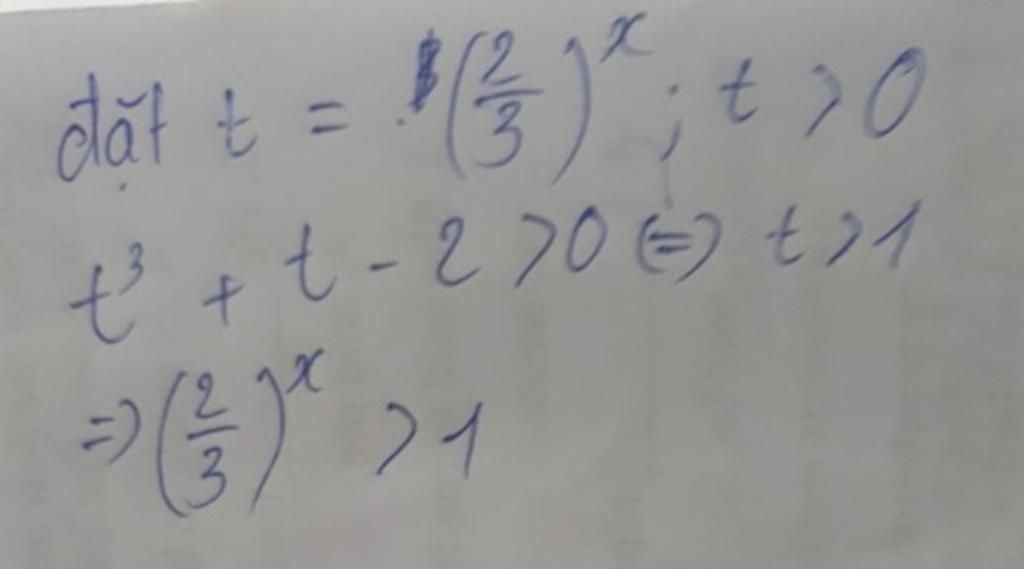 đặt t = (2/3)^x ; t > 0
t³ + t - 2 > 0 (=) t > 1
=) (2/3)^x > 1